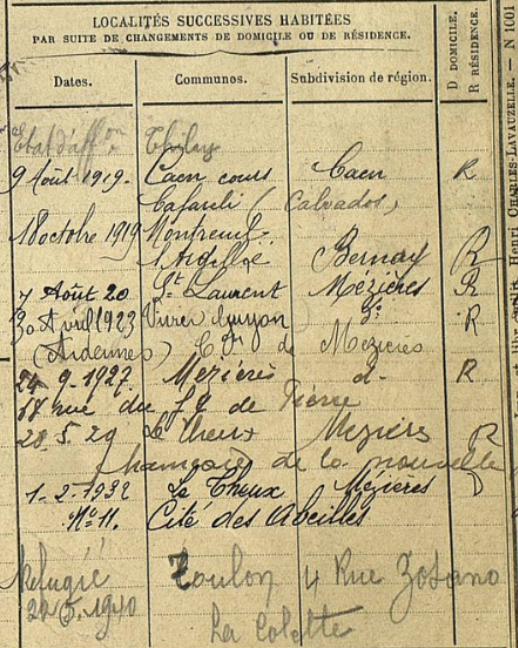 LOCALITÉS SUCCESSIVES HABITÉES
PAR SUITE DE CHANGEMENTS DE DOMICILE OU DE RÉSIDENCE.
D DOMICILE.
R RÉSIDENCE.
Dates. Communes. Subdivision de région.
Etat d'aff on Thilay
9 Août 1919. Caen cours Caen R
Cafareli (Calvados)
18 octobre 1919 Montreuil
l'Argillé Bernay R
7 Août 20 St Laurent Mézières R
30 Avril 1923 Vivier Guyon do R
(Ardennes) Con de Mezieres
24 9-1927. Mezières d- R
rue du fg de Pierre
28.5.29 Le Theux Mezieres R
de la nouvelle
1-2-1932 Le Theux Mezieres D
No 11. Cité des Abeilles
Réfugié Toulon 4 Rue
5.1940 La Colette
Henri CHARLES-LAVAUZELLE. — N 1001